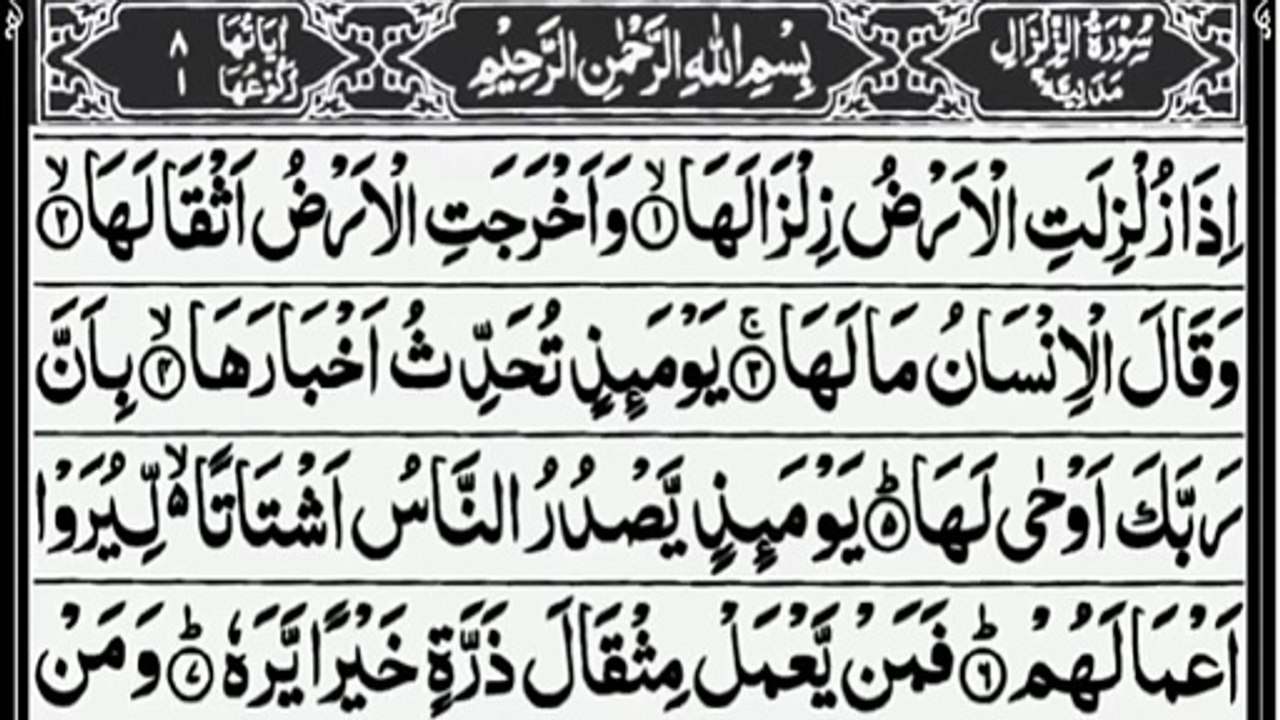 سُوْرَةُ الزِّلْزَالِ مَدَنِيَّةٌ بِسْمِ اللهِ الرَّحْمٰنِ الرَّحِيْمِ اٰيَاتُهَا ٨ رُكُوْعُهَا ١
اِذَا زُلْزِلَتِ الْاَرْضُ زِلْزَالَهَا ۙ﴿١﴾ وَاَخْرَجَتِ الْاَرْضُ اَثْقَالَهَا ۙ﴿٢﴾
وَقَالَ الْاِنْسَانُ مَا لَهَا ۚ﴿٣﴾ يَوْمَىِٕذٍ تُحَدِّثُ اَخْبَارَهَا ۙ﴿٤﴾ بِاَنَّ
رَبَّكَ اَوْحٰى لَهَا ؕ﴿٥﴾ يَوْمَىِٕذٍ يَّصْدُرُ النَّاسُ اَشْتَاتًا ۙ٥ لِّيُرَوْا
اَعْمَالَهُمْ ؕ﴿٦﴾ فَمَنْ يَّعْمَلْ مِثْقَالَ ذَرَّةٍ خَيْرًا يَّرَهٗ ؕ﴿٧﴾ وَمَنْ